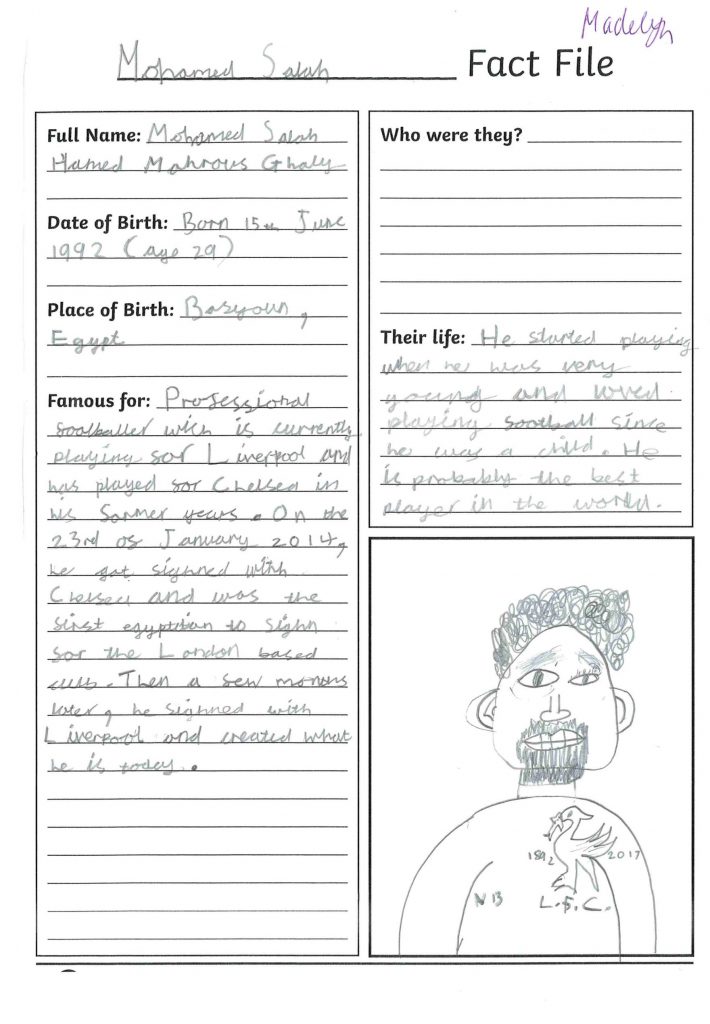 Madelyn
Mohamed Salah Fact File
Full Name: Mohamed Salah
Hamed Mahrous Ghaly
Date of Birth: Born 15th June
1992 (age 29)
Place of Birth: Basyoun,
Egypt
Famous for: Professional
footballer wich is currently
playing for Liverpool and
has played for Chelsea in
his former years. On the
23rd of January 2014,
he got sighned with
Chelsea and was the
first egyptian to sighn
for the London based
club. Then a few months
later, he sighned with
Liverpool and created what
he is today.
Who were they?
Their life: He started playing
when he was very
young and loved
playing football since
he was a child. He
is probably the best
player in the world.
1892 2017
L.F.C.